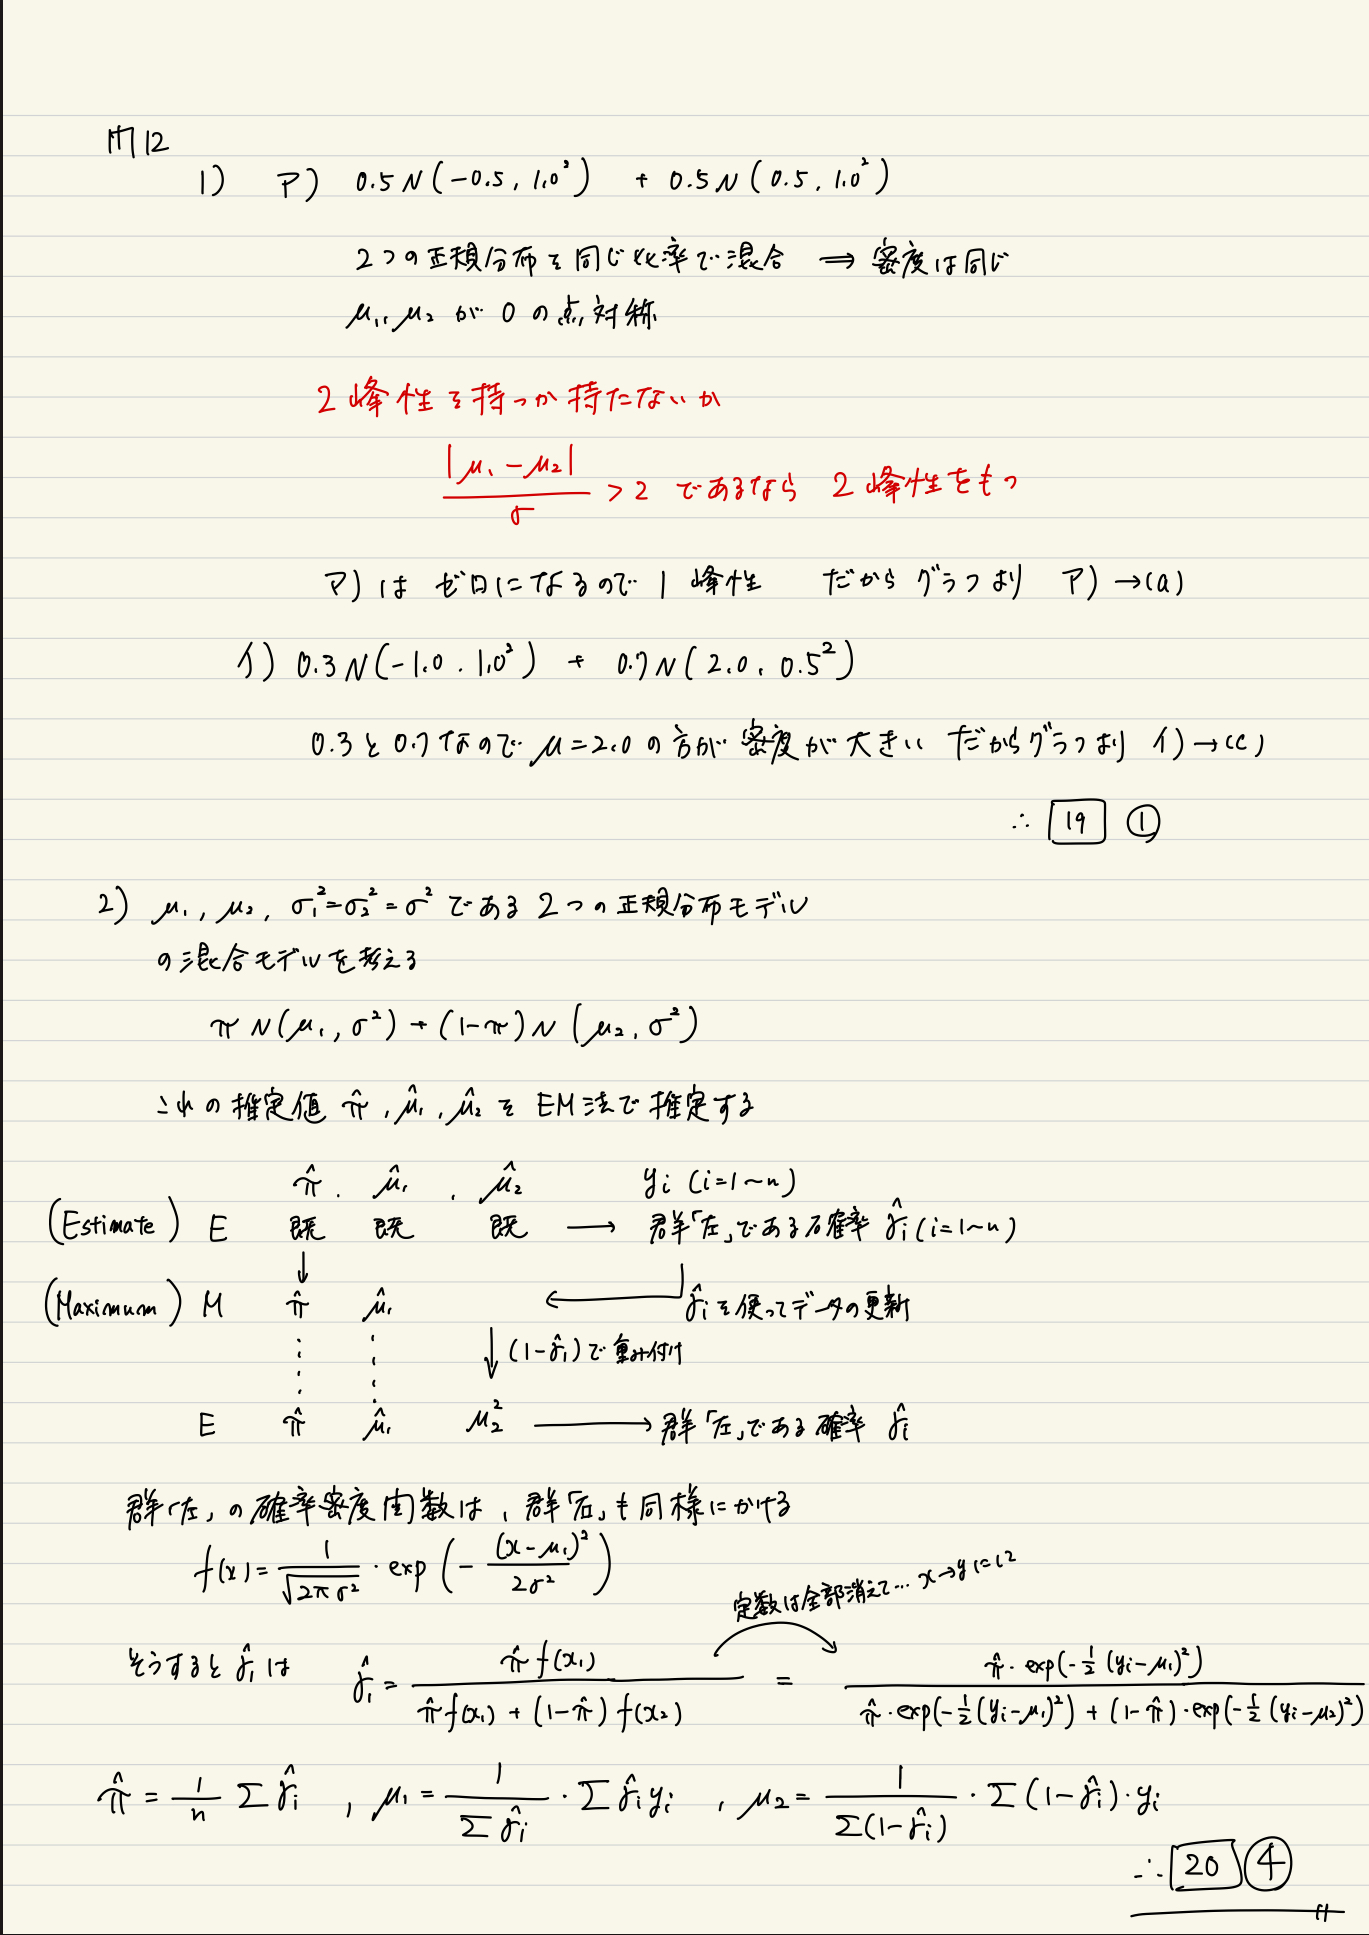 問12
1) ア) 0.5N(-0.5, 1.0²) + 0.5N(0.5, 1.0²)
2つの正規分布を同じ比率で混合 ⟹ 密度は同じ
μ₁, μ₂ が 0 の点対称
2峰性を持つか持たないか
|μ₁ - μ₂| / σ > 2 であるなら 2峰性をもつ
ア) は ゼロになるので 1峰性 だから グラフより ア) → (a)
イ) 0.3N(-1.0, 1.0²) + 0.7N(2.0, 0.5²)
0.3と0.7なので μ=2.0の方が密度が大きい だからグラフより イ) → (c)
∴ 19 ①
2) μ₁, μ₂, σ₁²=σ₂²=σ² である 2つの正規分布モデル
の混合モデルを考える
π N(μ₁, σ²) + (1-π) N(μ₂, σ²)
これの推定値 π̂, μ̂₁, μ̂₂ を EM法で推定する
π̂, μ̂₁, μ̂₂ yi (i=1~n)
(Estimate) E 既 既 既 → 群「左」である確率 γ̂i (i=1~n)
(Maximum) M π̂ μ̂₁ ← γ̂iを使ってデータの更新
↓ (1-γ̂i)で重み付け
E π̂ μ̂₁ μ₂² → 群「左」である確率 γ̂i
群「左」の確率密度関数は、群「右」も同様にかける
f(x) = 1/√(2πσ²) · exp(-(x-μ₁)²/2σ²)
定数は全部消えて… x→yiに
そうすると γ̂i は γ̂i = π̂f(x₁) / (π̂f(x₁) + (1-π̂)f(x₂)) = π̂·exp(-½(yi-μ₁)²) / (π̂·exp(-½(yi-μ₁)²) + (1-π̂)·exp(-½(yi-μ₂)²))
π̂ = 1/n Σγ̂i , μ₁ = 1/Σγ̂i · Σγ̂iyi , μ₂ = 1/Σ(1-γ̂i) · Σ(1-γ̂i)·yi
∴ 20 ④